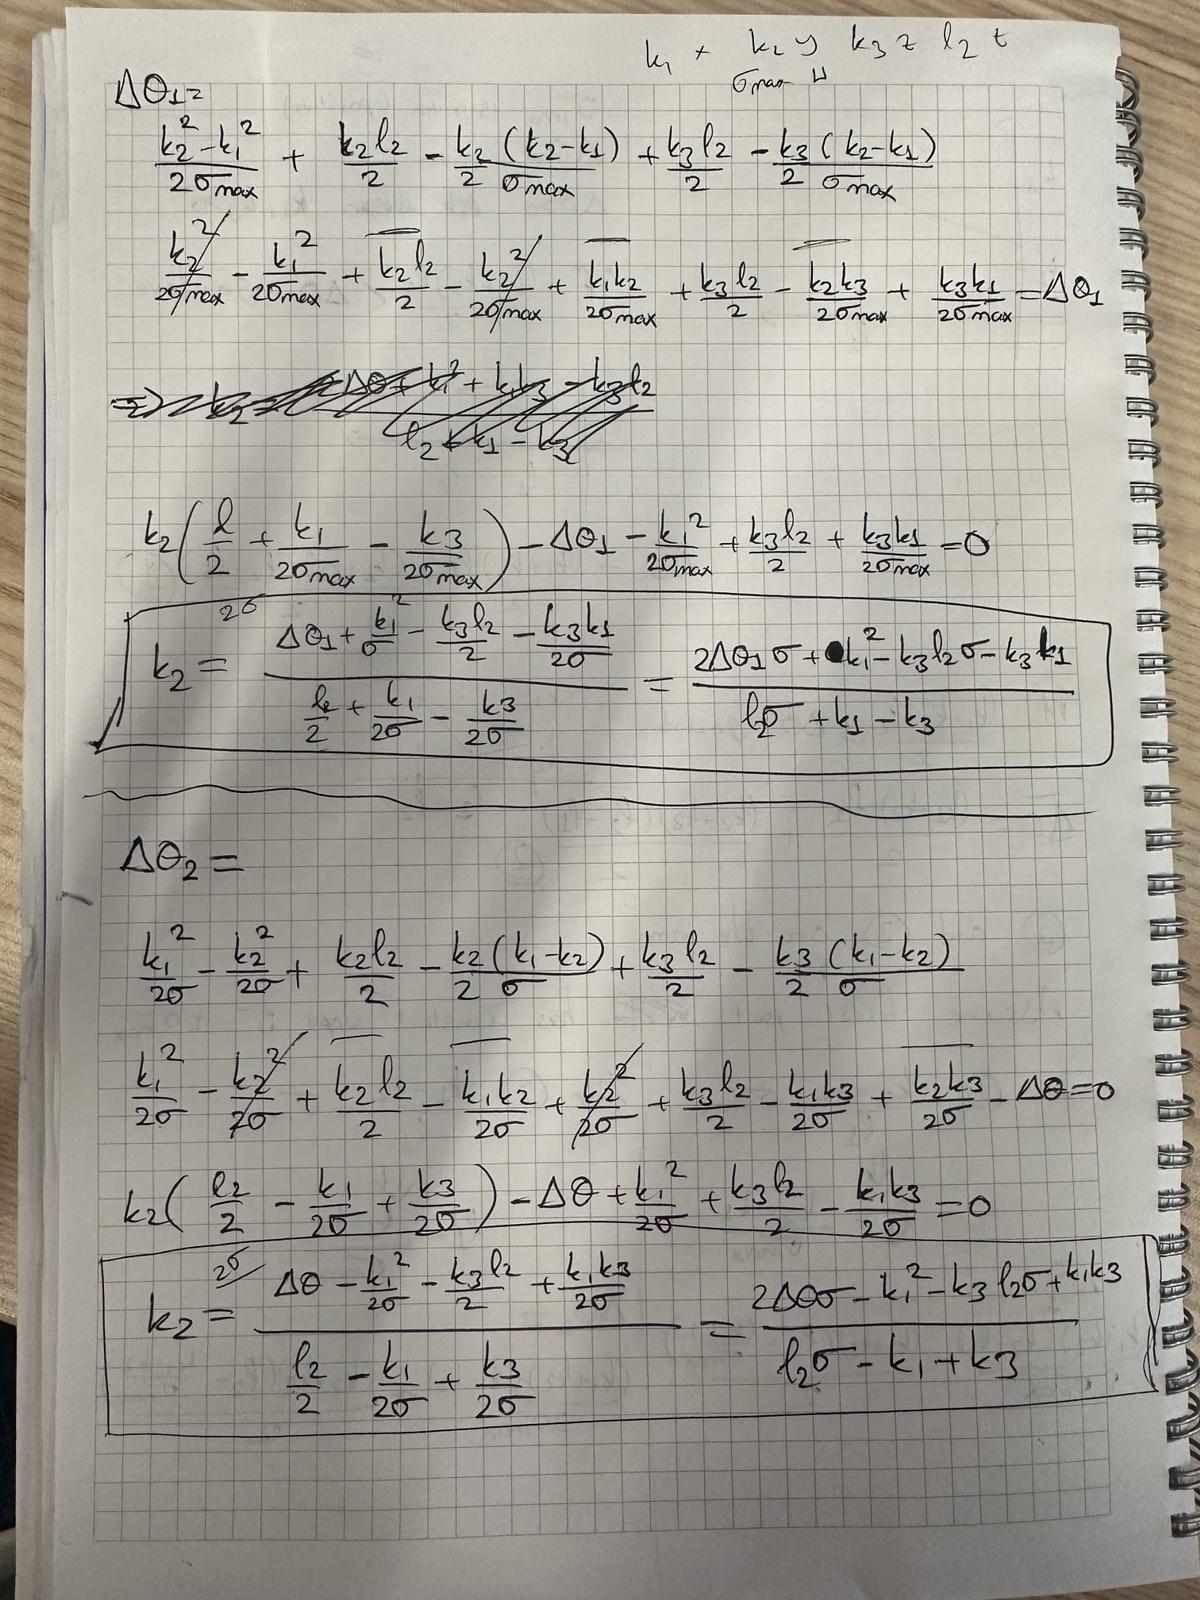 k₁ x k₂ y k₃ z l₂ t
σmax u
Δθ₁=
(k₂² - k₁²)/(2σmax) + k₂l₂/2 - k₂/2 (k₂-k₁)/σmax + k₃l₂/2 - k₃/2 (k₂-k₁)/σmax
k₂²/(2σmax) - k₁²/(2σmax) + k₂l₂/2 - k₂²/(2σmax) + k₁k₂/(2σmax) + k₃l₂/2 - k₂k₃/(2σmax) + k₃k₁/(2σmax) = Δθ₁
k₂(l/2 + k₁/(2σmax) - k₃/(2σmax)) - Δθ₁ - k₁²/(2σmax) + k₃l₂/2 + k₃k₁/(2σmax) = 0
2σ
k₂ = (Δθ₁ + k₁²/σ - k₃l₂/2 - k₃k₁/(2σ))/(l₂/2 + k₁/(2σ) - k₃/(2σ)) = (2Δθ₁σ + k₁² - k₃l₂σ - k₃k₁)/(l₂σ + k₁ - k₃)
Δθ₂ =
k₁²/(2σ) - k₂²/(2σ) + k₂l₂/2 - k₂/2 (k₁-k₂)/σ + k₃l₂/2 - k₃/2 (k₁-k₂)/σ
k₁²/(2σ) - k₂²/(2σ) + k₂l₂/2 - k₁k₂/(2σ) + k₂²/(2σ) + k₃l₂/2 - k₁k₃/(2σ) + k₂k₃/(2σ) - Δθ = 0
k₂(l₂/2 - k₁/(2σ) + k₃/(2σ)) - Δθ + k₁²/(2σ) + k₃l₂/2 - k₁k₃/(2σ) = 0
2σ
k₂ = (Δθ - k₁²/(2σ) - k₃l₂/2 + k₁k₃/(2σ))/(l₂/2 - k₁/(2σ) + k₃/(2σ)) = (2Δθσ - k₁² - k₃l₂σ + k₁k₃)/(l₂σ - k₁ + k₃)